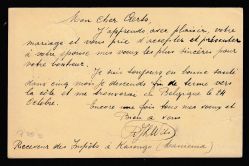 Mon cher Aerts,
J'apprends avec plaisir, votre
mariage et vous prie d'accepter et présenter
à votre épouse mes vœux les plus sincères pour
votre bonheur.
Je suis toujours en bonne santé
dans cinq mois je descends fin de terme vers
la côte et me trouverai en Belgique le 24
Octobre.
Encore une fois tous mes vœux et
bien à vous
Receveur des Impôts à Kasongo (Maniema)